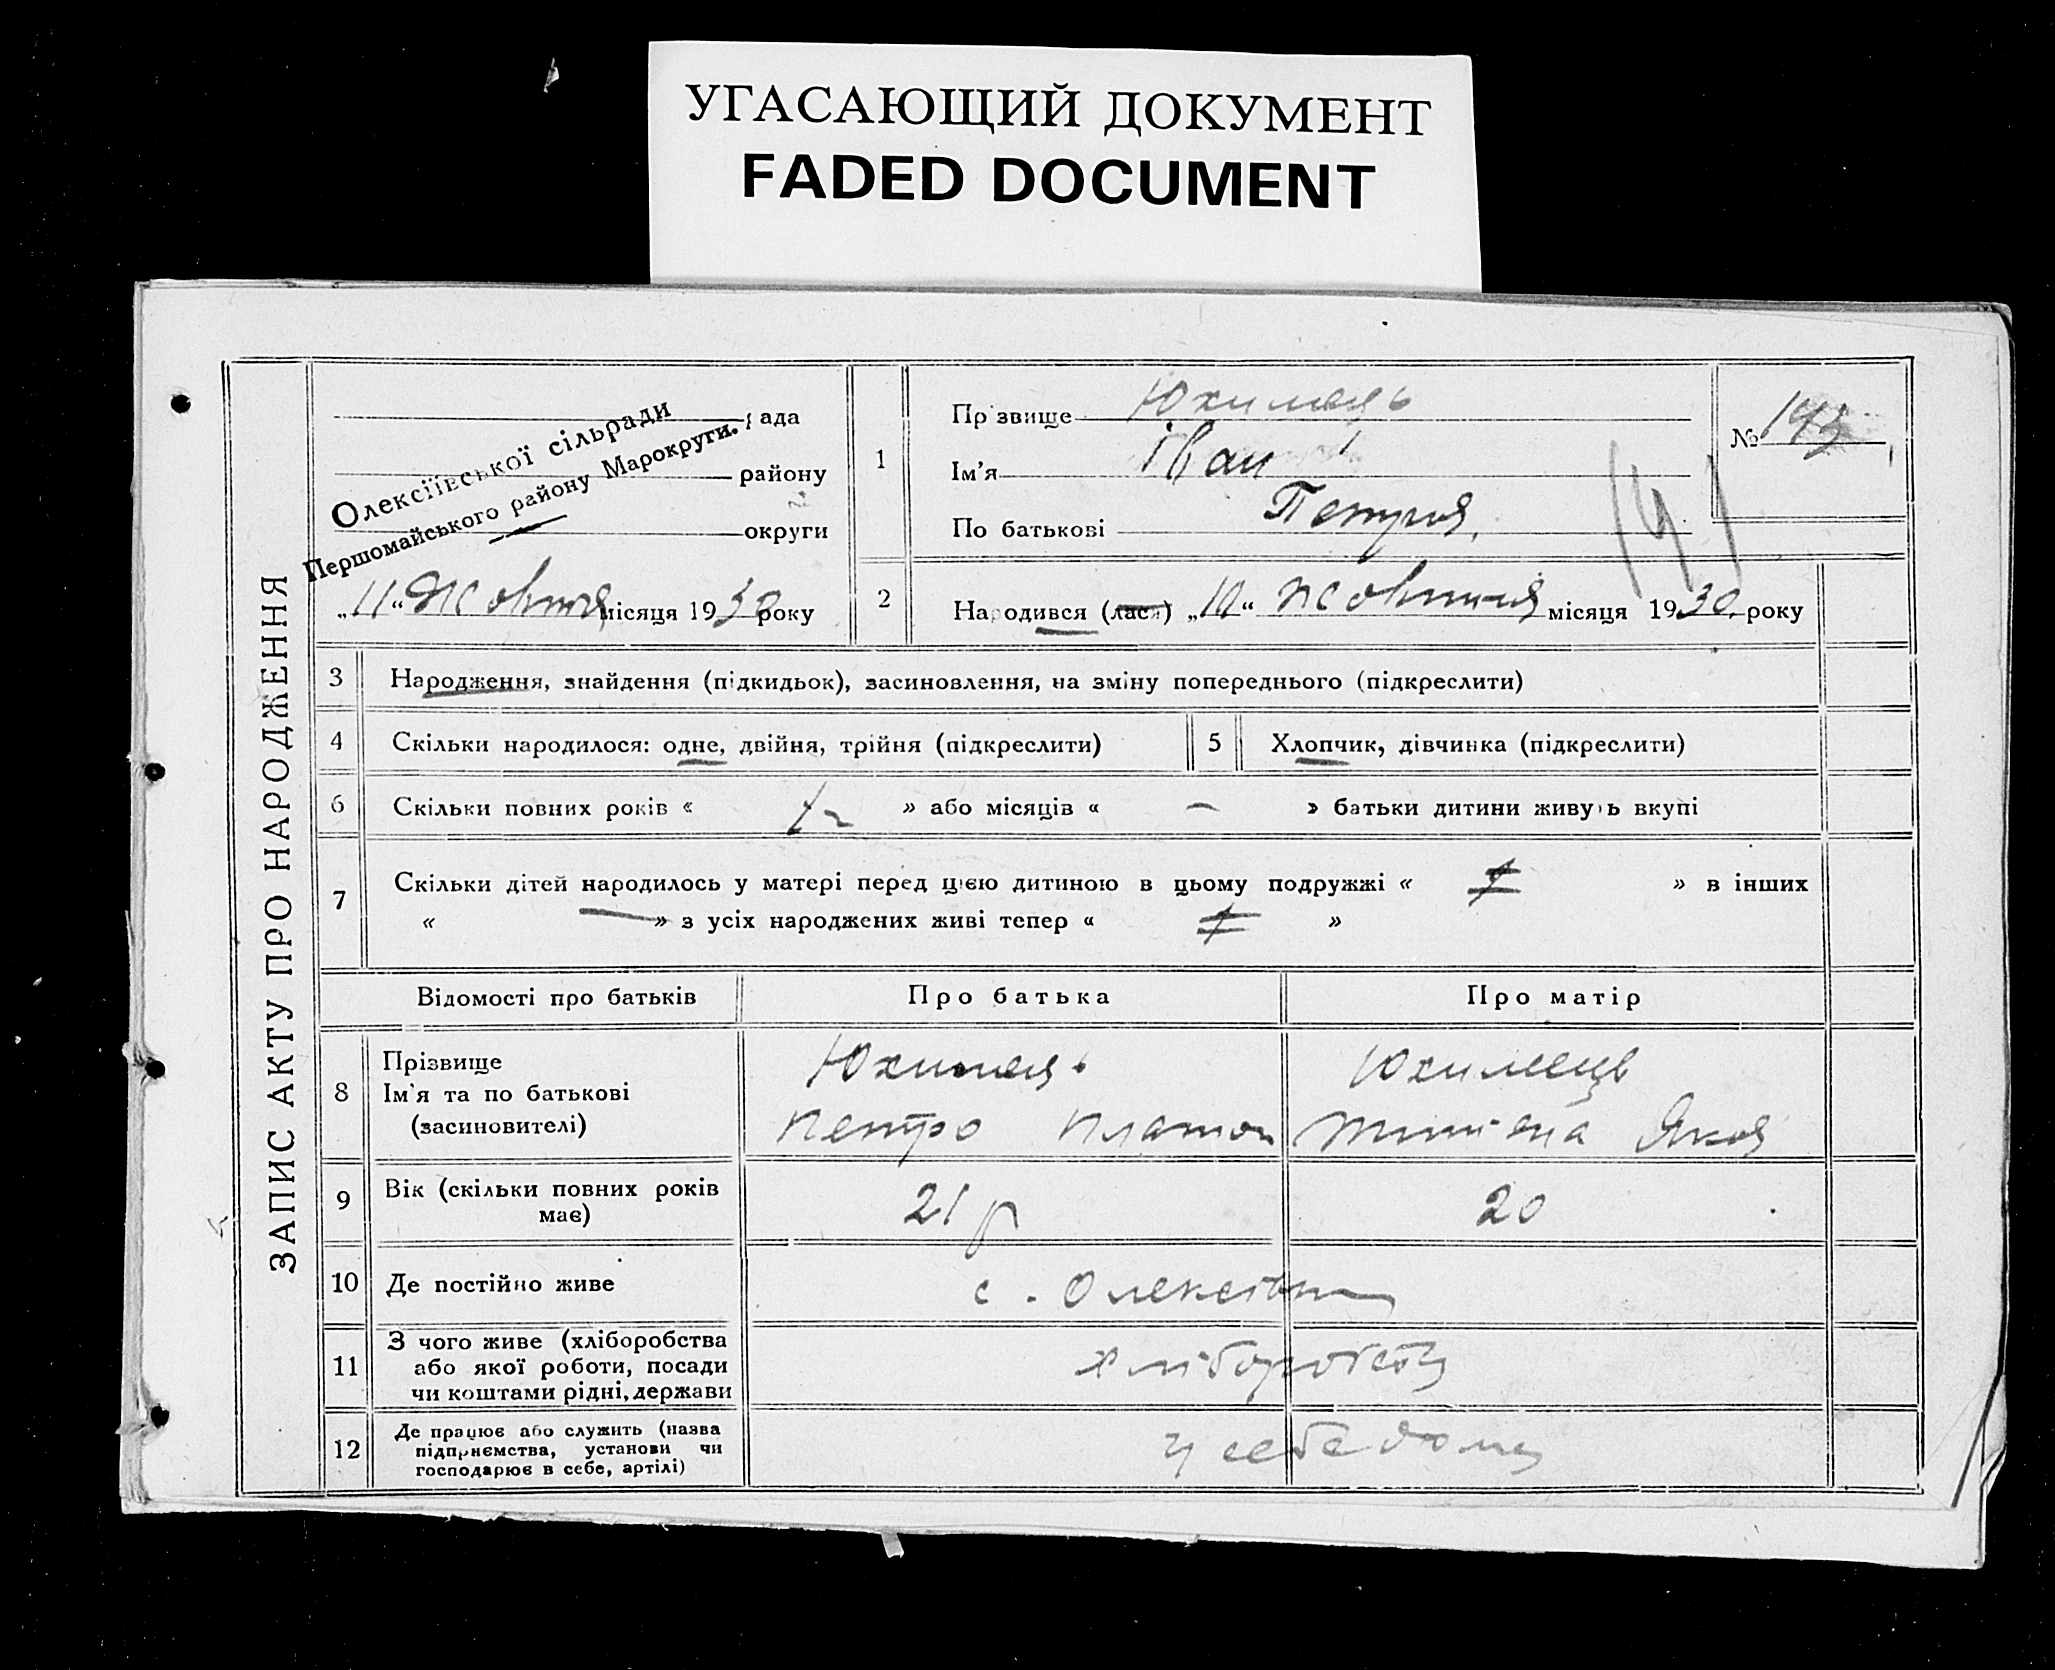 УГАСАЮЩИЙ ДОКУМЕНТ
FADED DOCUMENT
ЗАПИС АКТУ ПРО НАРОДЖЕННЯ
рада
району
округи
Олексіївської сільради
Першомайського району Марокруги.
„11“ Жовтня місяця 1930 року
1
Прізвище Юхимець
Ім'я Іван
По батькові Петров.
№ 143
141
2
Народився (лася) „10“ Жовтня місяця 1930 року
3 Народження, знайдення (підкидьок), засиновлення, на зміну попереднього (підкреслити)
4 Скільки народилося: одне, двійня, трійня (підкреслити)
5 Хлопчик, дівчинка (підкреслити)
6 Скільки повних років « » або місяців « — » батьки дитини живуть вкупі
7 Скільки дітей народилось у матері перед цією дитиною в цьому подружжі « » в інших
« — » з усіх народжених живі тепер « »
Відомості про батьків
Про батька
Про матір
8 Прізвище
Ім'я та по батькові
(засиновителі)
Юхимець
Петро Платон
Юхимець
Яков
9 Вік (скільки повних років
має)
21 р
20
10 Де постійно живе
с. Олексіївка
11 З чого живе (хліборобства
або якої роботи, посади
чи коштами рідні, держави
хліборобство
12 Де працює або служить (назва
підприємства, установи чи
господарює в себе, артілі)
у себе дома